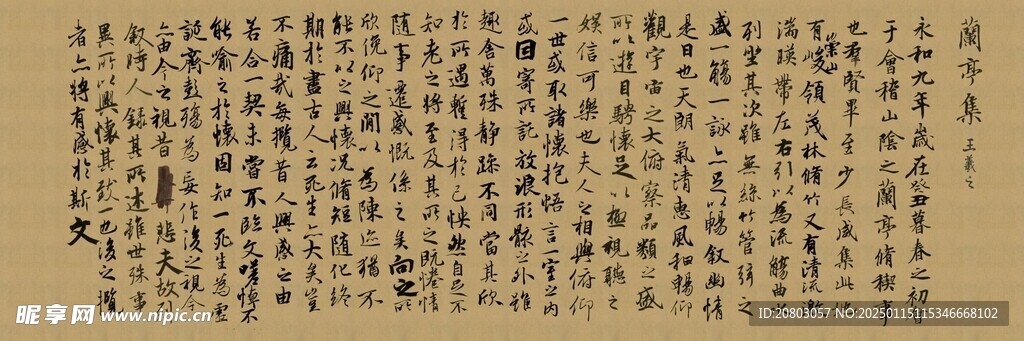 蘭亭集 王羲之
永和九年歲在癸丑暮春之初
于會稽山陰之蘭亭脩稧事
也羣賢畢至少長咸集此地
有崇山峻領茂林脩竹又有清流激
湍暎帶左右引以為流觴曲
列坐其次雖無絲竹管弦之
盛一觴一詠亦足以暢叙幽情
是日也天朗氣清惠風和暢仰
觀宇宙之大俯察品類之盛
所以遊目騁懷足以極視聽之
娛信可樂也夫人之相與俯仰
一世或取諸懷抱悟言一室之內
或因寄所託放浪形骸之外雖
趣舍萬殊静躁不同當其欣
於所遇暫得於己怏然自足不
知老之將至及其所之既惓情
隨事遷感慨係之矣向之所
欣俛仰之閒以為陳迹猶不
能不以之興懷况脩短隨化終
期於盡古人云死生亦大矣豈
不痛哉每攬昔人興感之由
若合一契未嘗不臨文嗟悼不
能喻之於懷固知一死生為虛
誕齊彭殤為妄作後之視今
亦由今之視昔 悲夫故列
叙時人錄其所述雖世殊事
異所以興懷其致一也後之攬
者亦將有感於斯文
昵享网 www.nipic.cn
ID:20803057 NO:20250115115346668102